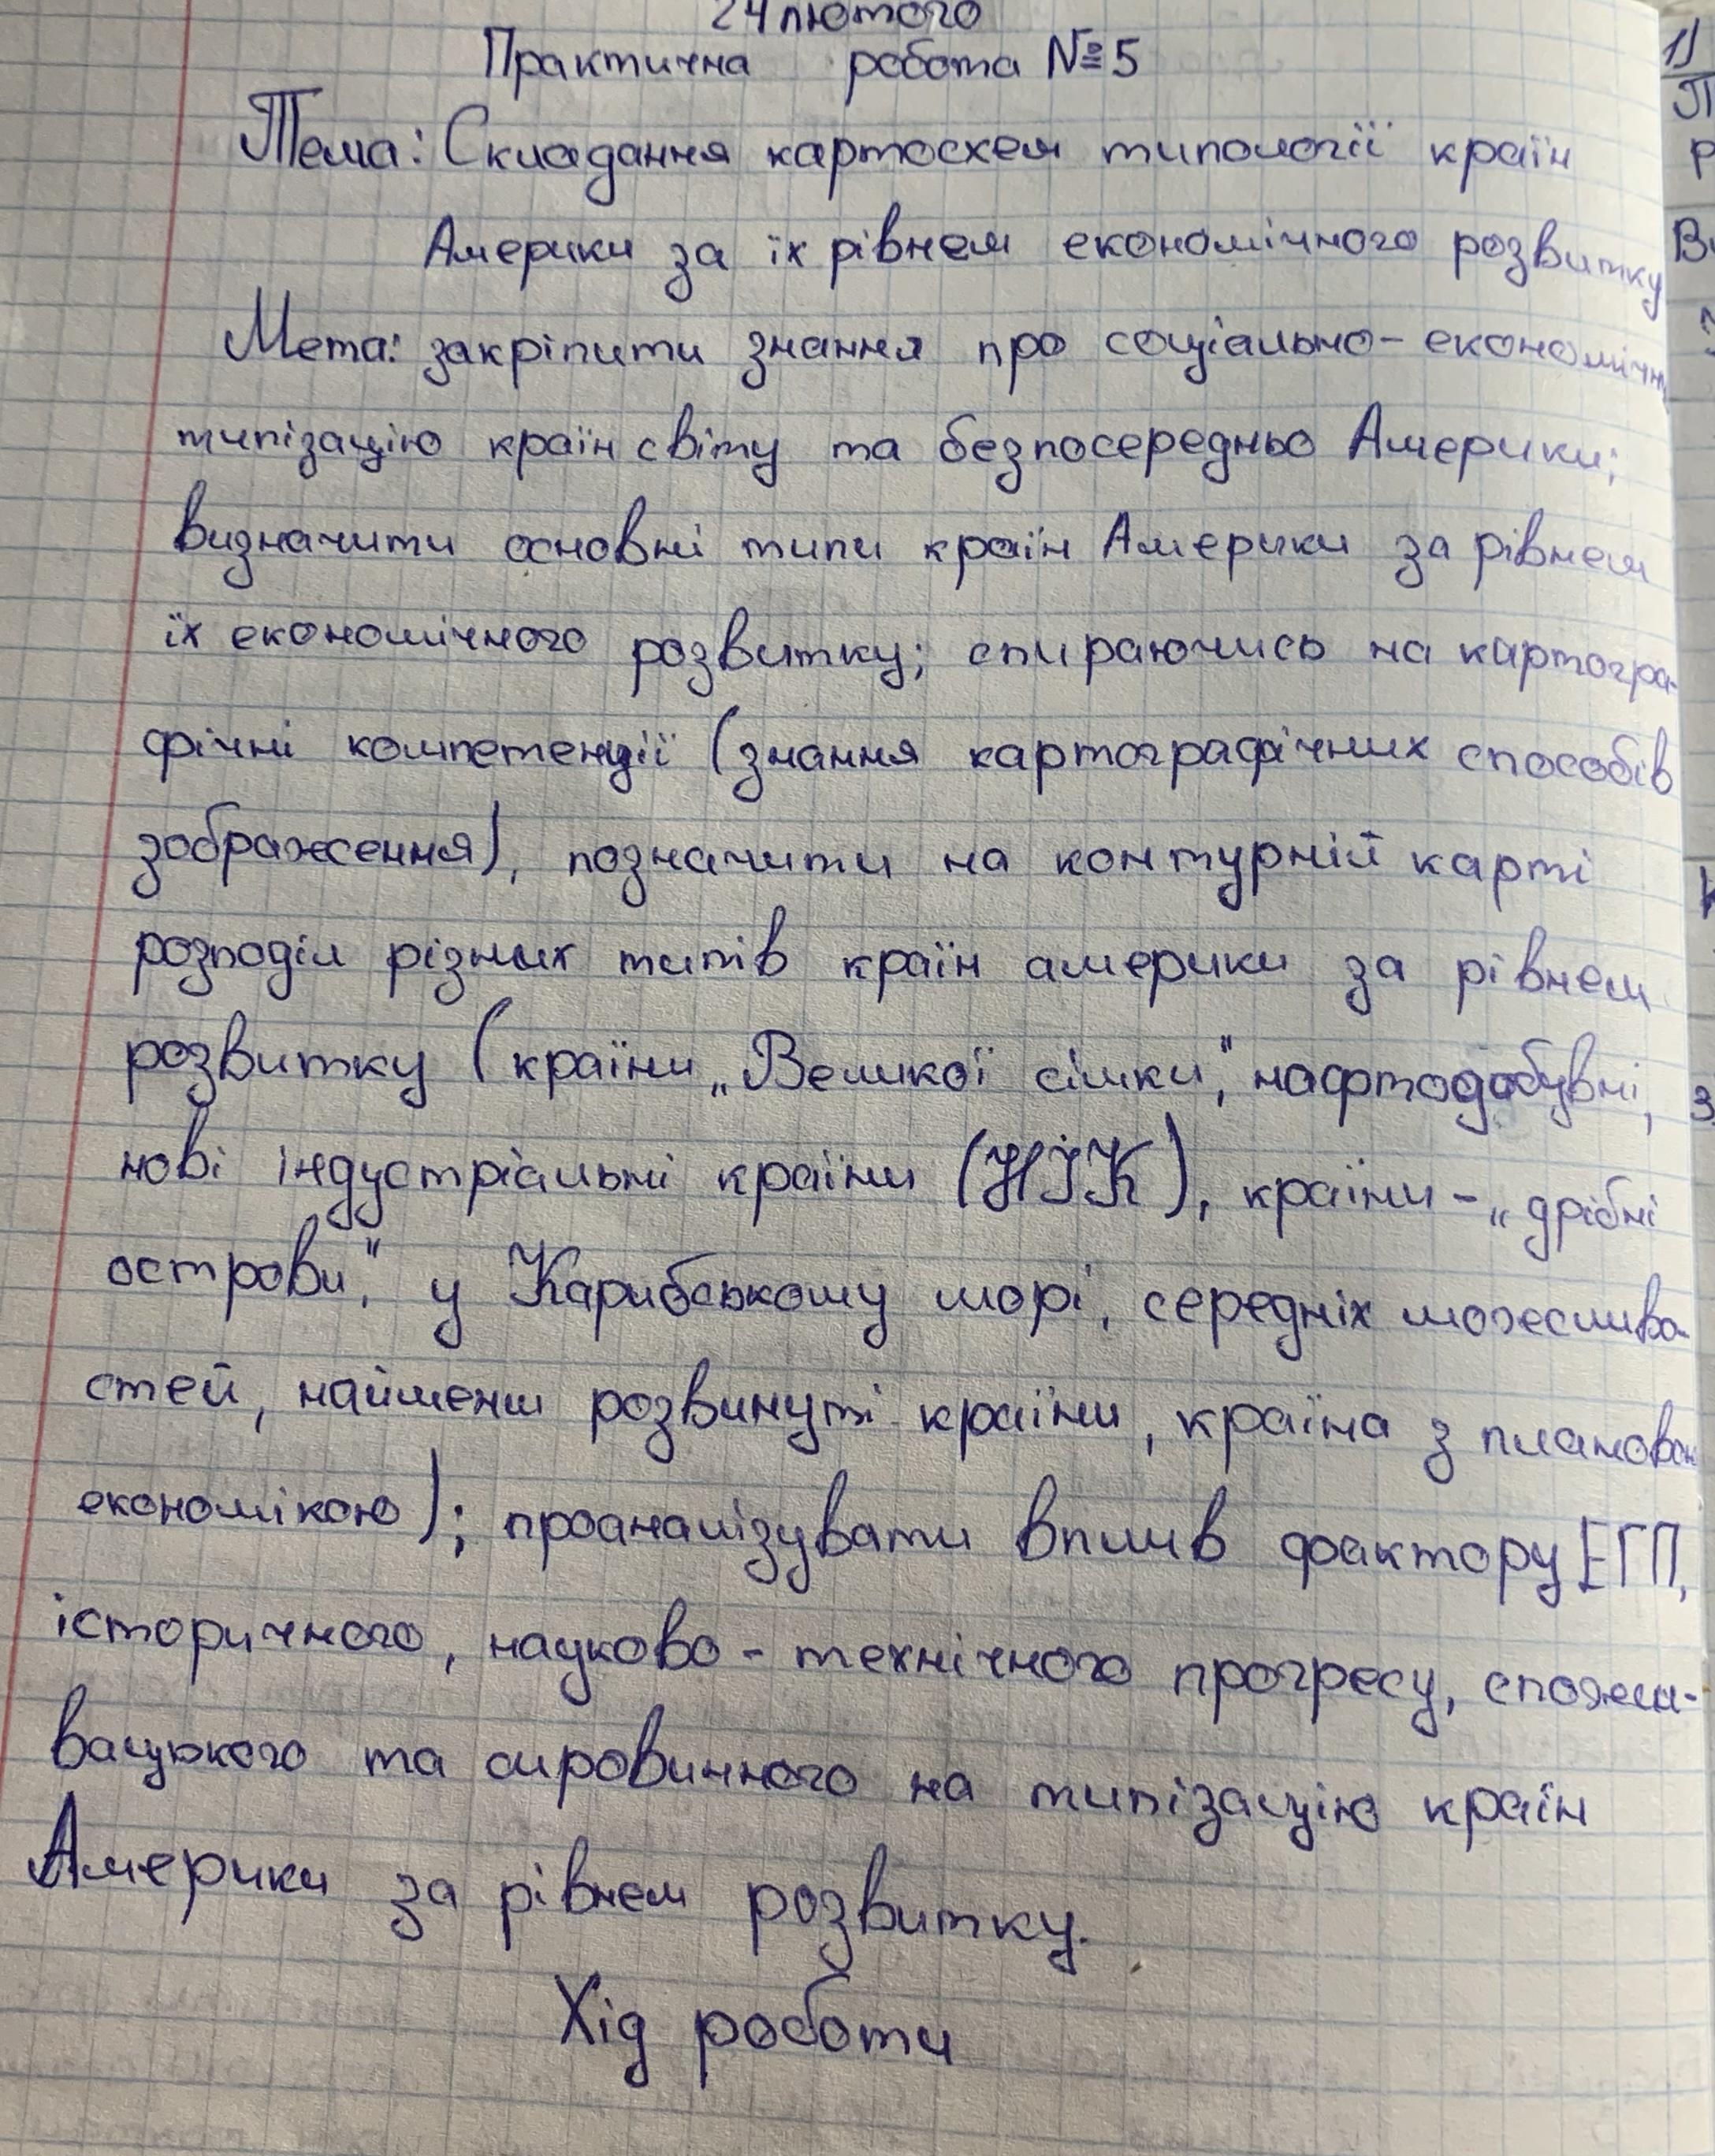 24 лютого
Практична робота №5
Тема: Складання картосхем типології країн
Америки за їх рівнем економічного розвитку
Мета: закріпити знання про соціально-економічну
типізацію країн світу та безпосередньо Америки;
визначити основні типи країн Америки за рівнем
їх економічного розвитку; спираючись на картогра-
фічні компетенції (знання картографічних способів
зображення), позначити на контурній карті
розподіл різних типів країн америки за рівнем
розвитку (країни „Великої сімки", нафтодобувні,
нові індустріальні країни (НІК), країни - „дрібні
острови", у Карибському морі, середніх можливо-
стей, найменш розвинуті країни, країна з планован
економікою); проаналізувати вплив фактору ЕГП,
історичного, науково - технічного прогресу, спожи-
вацького та сировинного на типізацію країн
Америки за рівнем розвитку.
Хід роботи
1)